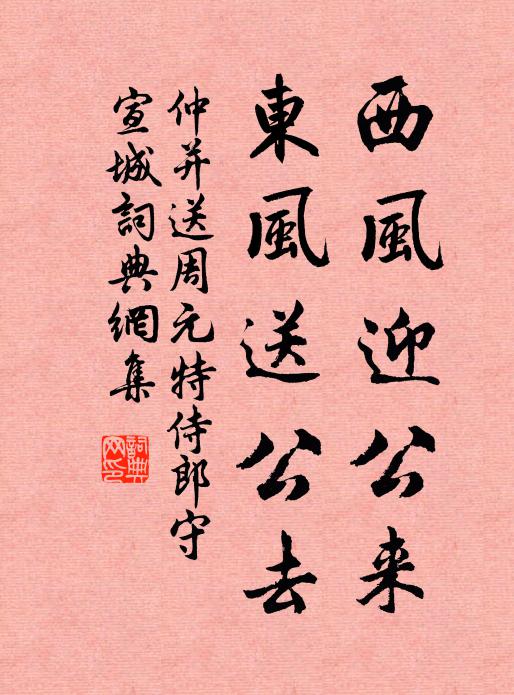 西風迎公来
東風送公去
仲并送周元特侍郎守
宣城詞典網集
詞典
网印